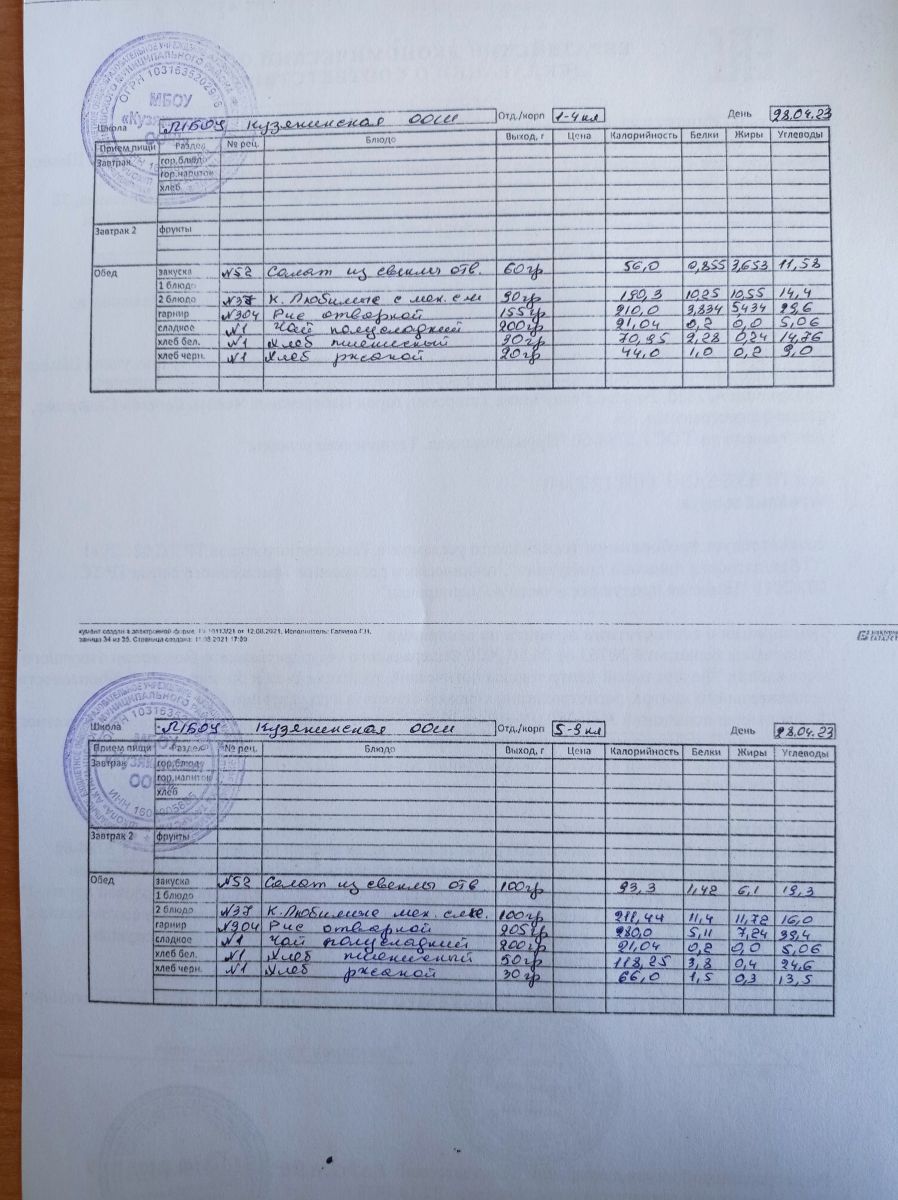 МБОУ
Школа МБОУ Кузякинская ООШ Отд./корп 1-4 кл День 28.04.23
Прием пищи Раздел № рец. Блюдо Выход, г Цена Калорийность Белки Жиры Углеводы
Завтрак гор.блюдо
гор.напиток
хлеб
Завтрак 2 фрукты
Обед закуска №52 Салат из свеклы отв. 60гр 56,0 0,855 3,653 11,58
1 блюдо
2 блюдо К. Любимые с мяс. 90гр 190,3 10,25 10,55 14,4
гарнир №304 Рис отворной 155гр 210,0 3,834 5434 29,6
сладкое №1 Чай полусладкий 200гр 21,04 0,2 0,0 5,06
хлеб бел. №1 Хлеб пшеничный 30гр 70,95 2,28 0,24 14,76
хлеб черн. №1 Хлеб ржаной 20гр 44,0 1,0 0,2 9,0
кумент создан в электронной форме. от 12.08.2021. Исполнитель: Галиева Г.Н.
раница 34 из 35. Страница создана: 11.08.2021 17:39
Школа МБОУ Кузякинская ООШ Отд./корп 5-9 кл День 28.04.23
Прием пищи Раздел № рец. Блюдо Выход, г Цена Калорийность Белки Жиры Углеводы
Завтрак гор.блюдо
гор.напиток
хлеб
Завтрак 2 фрукты
Обед закуска №52 Салат из свеклы отв 100гр 93,3 1,42 6,1 19,3
1 блюдо
2 блюдо №37 К. Любимые мяс. 100гр 211,44 11,4 11,72 16,0
гарнир №304 Рис отворной 205гр 280,0 5,11 7,24 39,4
сладкое №1 Чай полусладкий 200гр 21,04 0,2 0,0 5,06
хлеб бел. №1 Хлеб пшеничный 50гр 118,25 3,8 0,4 24,6
хлеб черн. №1 Хлеб ржаной 30гр 66,0 1,5 0,3 13,5